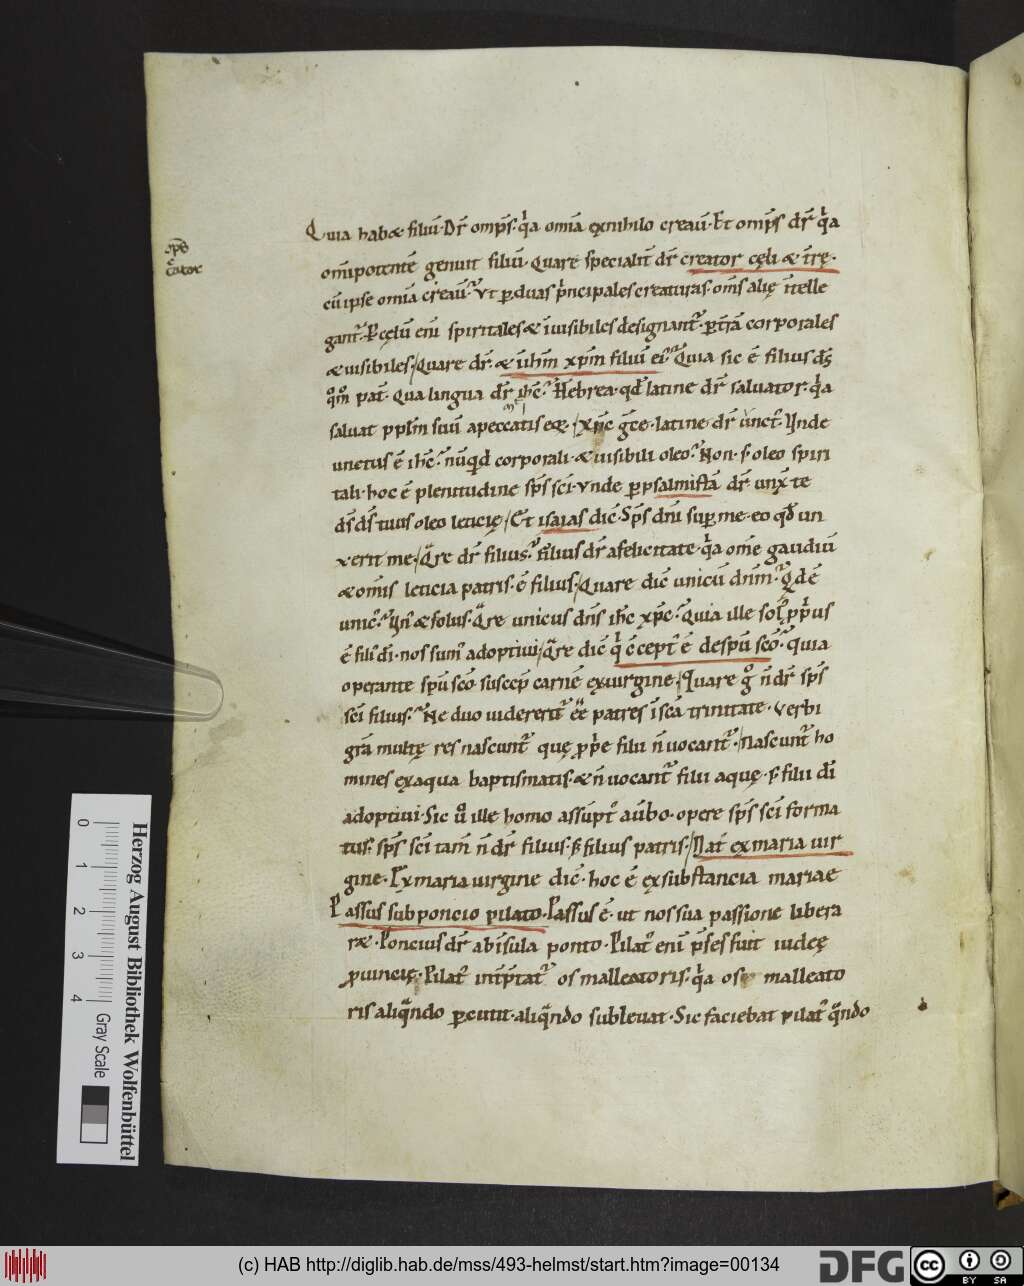 Quia habet filiū· Dr̄ omp̄s· q̇a om̄ia exnihilo creaū· Et omp̄s dr̄ q̇a
om̄ipotentē genuit filiū· Quare specialit̄ dr̄ creator cęli & tr̄ę·
cū ipse om̄ia creaū· Vt ꝑduas p̄ncipales creaturas· om̄s alię ītelle
gant᷑· P cęlū enī spiritales & īuisibiles designant᷑· ꝑtr̄ā corporales
& uisibiles· Quare dr̄· & īh̄m xp̄m filiū ei᷑· Quia sic ē filius dī
qm̊ pat̄· Qua lingua dr̄ ih̄c· Hebrea· qd̄ latine dr̄ saluator· q̇a
saluat ppl̄m suū apeccatis eoꝝ· xp̄c gc̄e· latine dr̄ unct᷒· Unde
unctus ē ih̄c· nūquid corporali· & uisibili oleo· Non· s̄ oleo spiri
tali· hoc ē plenitudine sp̄s sc̄i· Vnde ꝑpsalmistā dr̄ unx̄ te
ds̄ ds̄ tuus oleo leticię· Et isaias dic̄· Sp̄s dn̄i suꝑme· eo qđ un
xerit me· Qͣre dr̄ filius· filius dr̄ afelicitate· q̇a om̄e gaudiū
& om̄is leticia patris· ē filius· Quare dic̄ unicū dn̄m· Qd ē
unic᷒· Un᷒ & solus· Qͣre unicus dn̄s ih̄c xp̄c· Quia ille sol᷒ ꝓprius
ē fili᷒ dī· nos sum᷒ adoptiui· Qͣre dic̄ q̇ c̄cept᷒ ē despū sc̄o· quia
operante sp̄u sc̄o suscep̄ carnē exuirgine· Quare gͦ n̄ dr̄ sp̄s
sc̄i filius· Ne duo uiderent᷑ eē patres ī sc̄a trinitate· Verbi
gr̄a multę res nascunt᷑ quę ꝓp̄e filii n̄ uocant᷑· Nascunt᷑ ho
mines exaqua baptismatis· & n̄ uocant᷑ filii aquę· s̄ filii dī
adoptiui· Sic ůo ille homo assūpt᷒ auēbo· opere sp̄s sc̄i forma
tus· sp̄s sc̄i tam̄ n̄ dr̄ filius· s̄ filius patris· Nat᷒ exmaria uir
gine· Exmaria uirgine dic̄· hoc ē exsubstancia mariae
Passus subponcio pilato· Passus ē· ut nos sua passione libera
ret· Poncius dr̄ abīsula ponto· Pilat᷒ enī p̄ses fuit iudeę
ꝓuincię· Pilat᷒ intp̄tat᷑ os malleatoris· q̇a os malleato
ris aliqͣndo ꝑcutit· aliqͣndo subleuat· Sic faciebat pilat᷒ qͣndo
Herzog August Bibliothek Wolfenbüttel
0 1 2 3 4
Gray Scale
(c) HAB http://diglib.hab.de/mss/493-helmst/start.htm?image=00134
DFG
cc BY SA